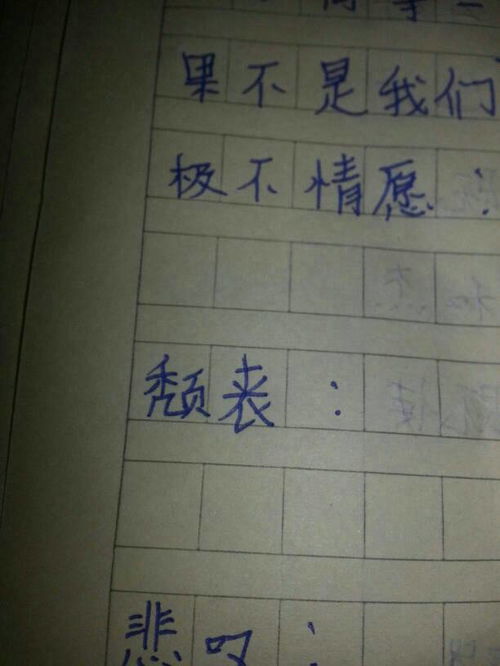 果不是我们
极不情愿：
颓丧：
悲叹：